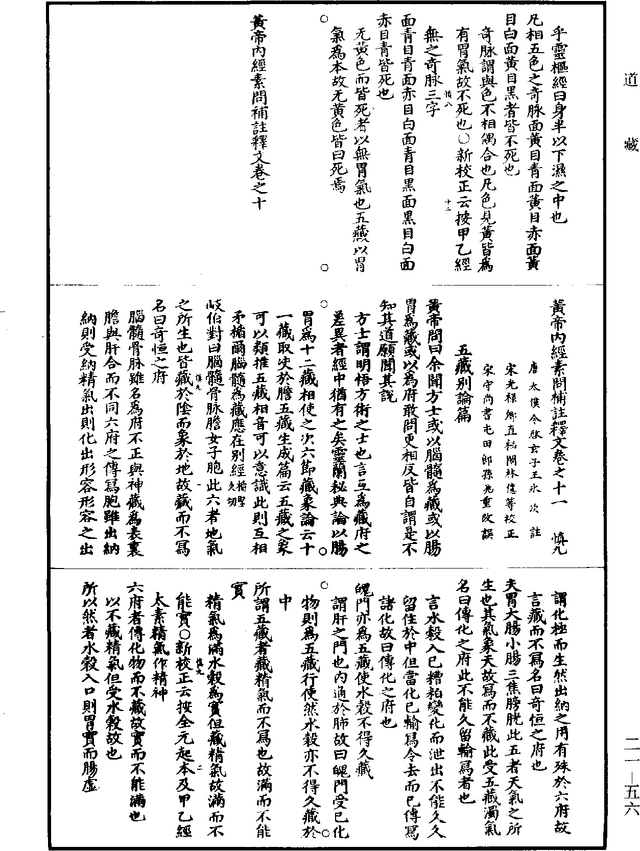 道藏
乎靈樞經曰身半以下濕之中也
凡相五色之奇脉面黃目青面黃目赤面黃
目白面黃目黑者皆不死也
奇脉謂與色不相偶合也凡色見黃皆爲
有胃氣故不死也○新校正云按甲乙經
無之奇脉三字
面青目青面赤目白面青目黑面黑目白面
赤目青皆死也
无黃色而皆死者以無胃氣也五藏以胃
氣爲本故无黃色皆曰死焉
黃帝內經素問補註釋文卷之十
黃帝內經素問補註釋文卷之十一
唐太僕令啟玄子王氷次註
宋光祿卿直祕閣林億等校正
宋守尚書屯田郎孫兆重改誤
五藏別論篇
黃帝問曰余聞方士或以腦髓爲藏或以腸
胃爲藏或以爲府敢問更相反皆自謂是不
知其道願聞其說
方士謂明悟方術之士也言互爲藏府之
差異者經中猶有之矣靈蘭秘典論以腸
胃爲十二藏相使之次六節藏象論云十
一藏取決於膽五藏生成篇云五藏之象
可以類推五藏相音可以意識此則互相
矛楯爾腦髓爲藏應在別經
岐伯對曰腦髓骨脉膽女子胞此六者地氣
之所生也皆藏於陰而象於地故藏而不寫
名曰奇恒之府
腦髓骨脉雖名爲府不正與神藏爲表裏
膽與肝合而不同六府之傳寫胞雖出納
納則受納精氣出則化出形容形容之出
謂化極而生然出納之用有殊於六府故
言藏而不寫名曰奇恒之府也
夫胃大腸小腸三焦膀胱此五者天氣之所
生也其氣象天故寫而不藏此受五藏濁氣
名曰傳化之府此不能久留輸寫者也
言水穀入已糟粕變化而泄出不能久久
留住於中但當化已輸寫令去而已傳寫
諸化故曰傳化之府也
魄門亦爲五藏使水穀不得久藏
謂肝之門也內通於肺故曰魄門受已化
物則爲五藏行使然水穀亦不得久藏於
中
所謂五藏者藏精氣而不寫也故滿而不能
實
精氣爲滿水穀爲實但藏精氣故滿而不
能實○新校正云按全元起本及甲乙經
太素精氣作精神
六府者傳化物而不藏故實而不能滿也
以不藏精氣但受水穀故也
所以然者水穀入口則胃實而腸虛
二一—五六